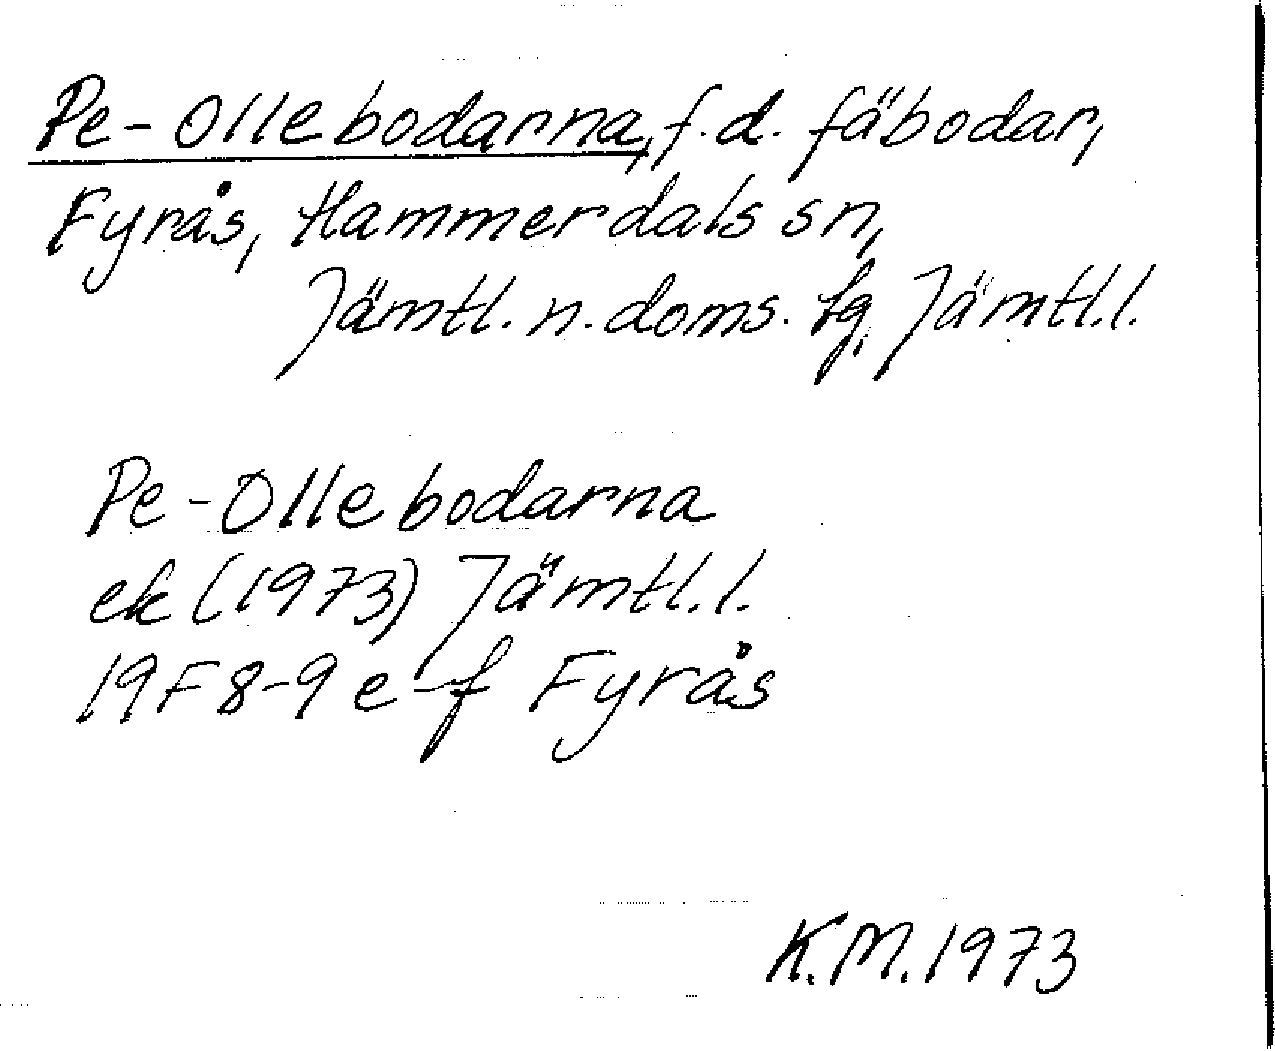 Pe-Ollebodarna, f.d. fäbodar,
Fyrås, Hammerdals sn,
Jämtl. n. doms. tg, Jämtl.l.
Pe-Ollebodarna
ek (1973) Jämtl.l.
19F8-9e-f Fyrås
K.M.1973